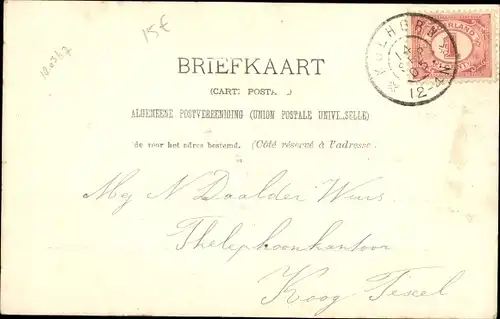 15€
BRIEFKAART
(CARTE POSTALE)
ALGEMEENE POSTVEREENIGING (UNION POSTALE UNIVERSELLE)
de voor het adres bestemd. (Côté réservé à l'adresse.
KOLHORN
12-4
Mej N Daalder Wuis
Thelephoonkantoor
Koog Texel